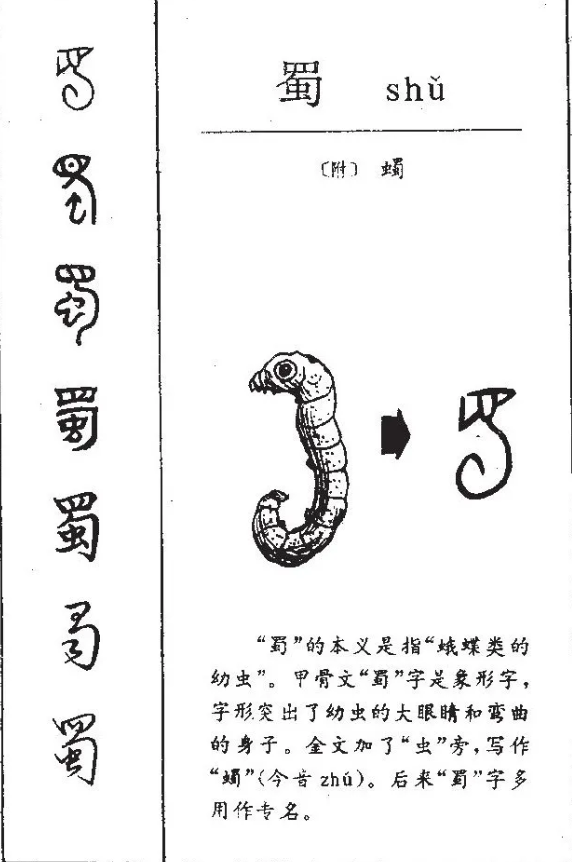 蜀 shǔ
〔附〕 蠋
“蜀”的本义是指“蛾蝶类的
幼虫”。甲骨文“蜀”字是象形字，
字形突出了幼虫的大眼睛和弯曲
的身子。金文加了“虫”旁，写作
“蠋”（今音 zhú）。后来“蜀”字多
用作专名。